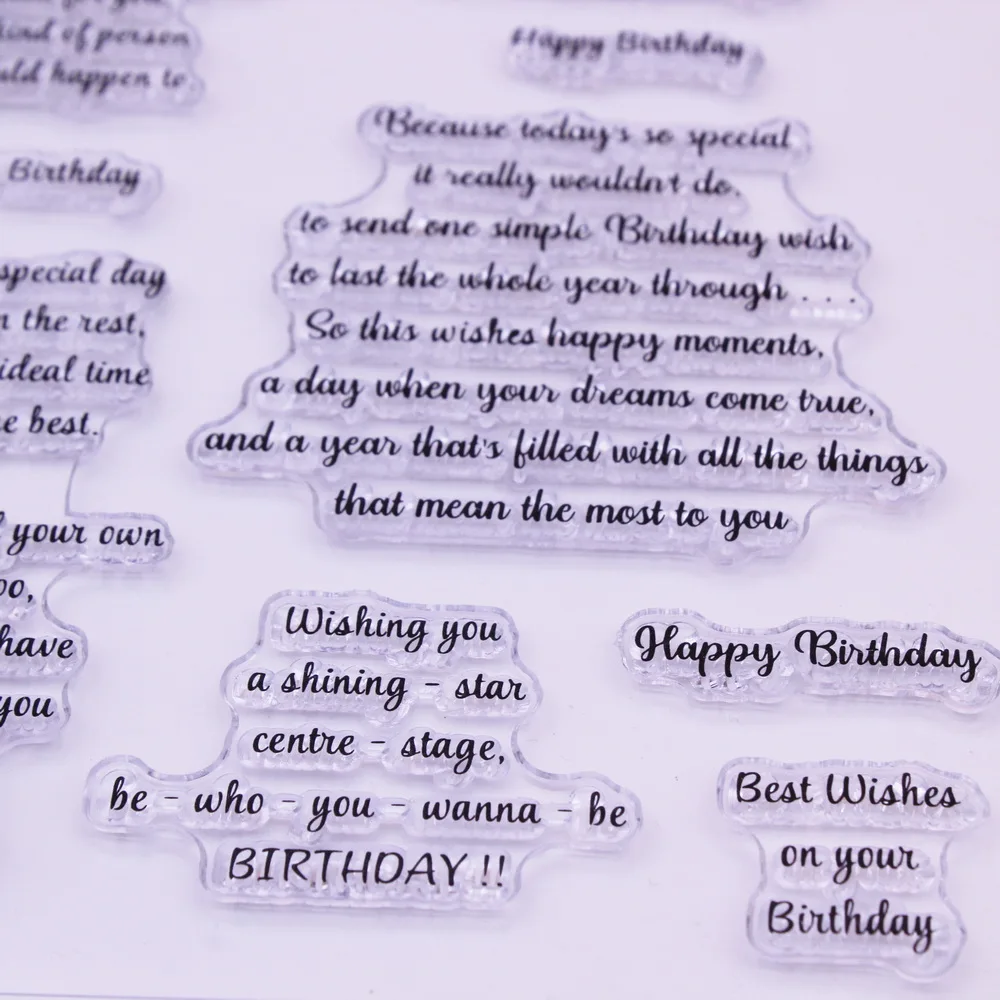 kind of person
happen to
Birthday
special day
the rest,
ideal time
best.
your own
have
you
Happy Birthday
Because today's so special
it really wouldn't do,
to send one simple Birthday wish
to last the whole year through . . .
So this wishes happy moments,
a day when your dreams come true,
and a year that's filled with all the things
that mean the most to you
Wishing you
a shining - star
centre - stage,
be - who - you - wanna - be
BIRTHDAY !!
Happy Birthday
Best Wishes
on your
Birthday